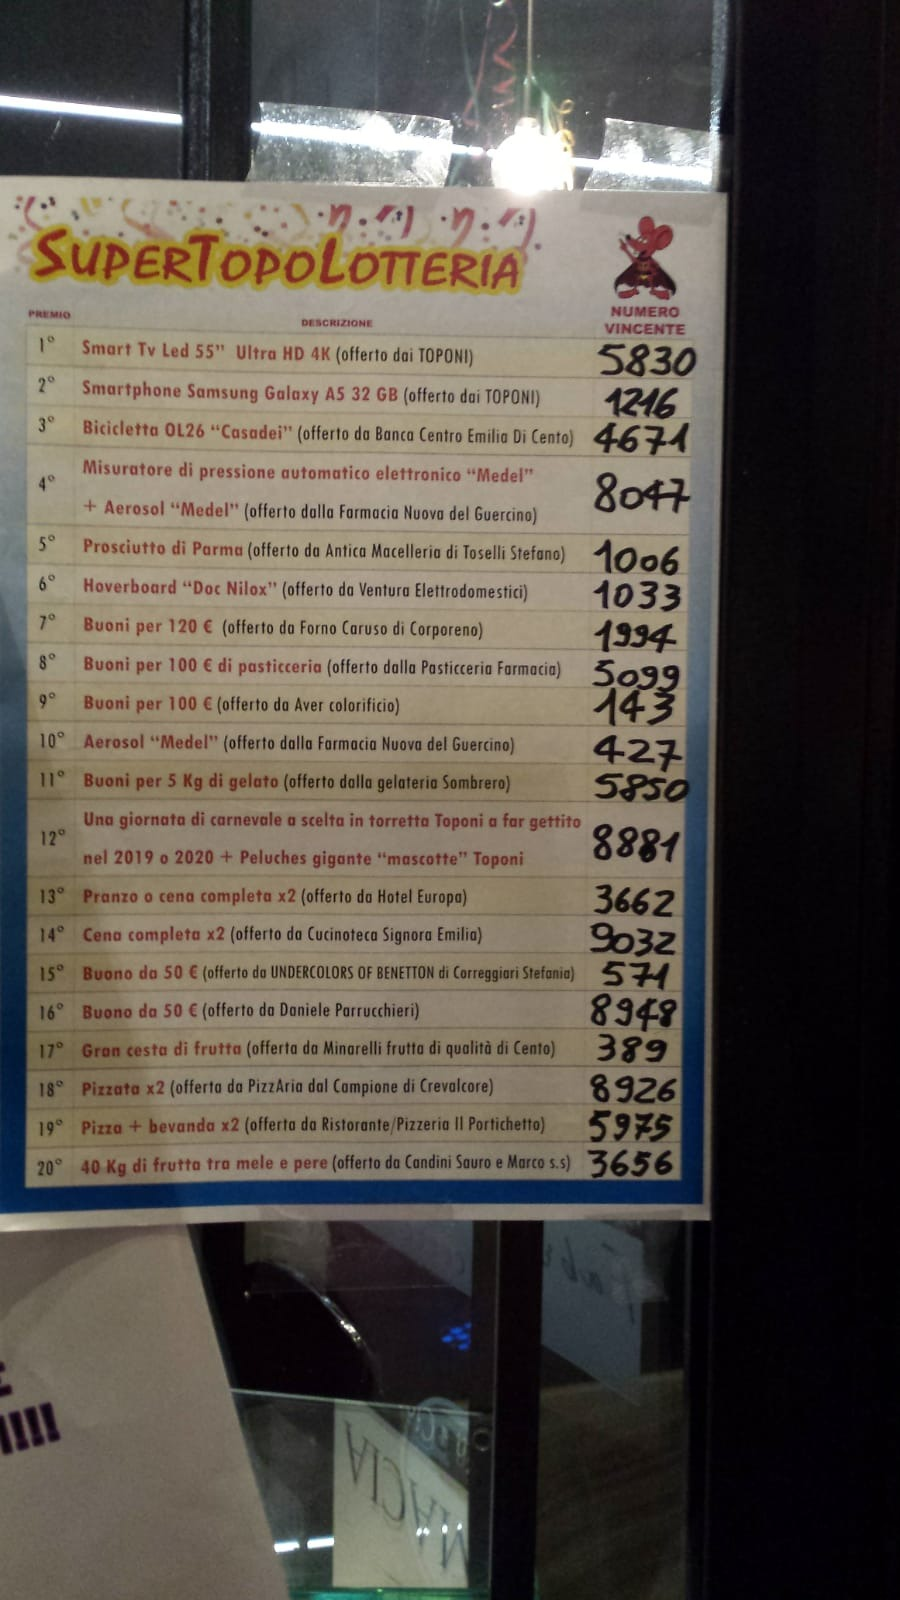 SUPERTOPOLOTTERIA
PREMIO DESCRIZIONE NUMERO VINCENTE
1° Smart Tv Led 55” Ultra HD 4K (offerto dai TOPONI) 5830
2° Smartphone Samsung Galaxy A5 32 GB (offerto dai TOPONI) 1216
3° Bicicletta OL26 “Casadei” (offerto da Banca Centro Emilia Di Cento) 4671
4° Misuratore di pressione automatico elettronico “Medel”
+ Aerosol “Medel” (offerto dalla Farmacia Nuova del Guercino) 8047
5° Prosciutto di Parma (offerto da Antica Macelleria di Toselli Stefano) 1006
6° Hoverboard “Doc Nilox” (offerto da Ventura Elettrodomestici) 1033
7° Buoni per 120 € (offerto da Forno Caruso di Corporeno) 1994
8° Buoni per 100 € di pasticceria (offerto dalla Pasticceria Farmacia) 5099
9° Buoni per 100 € (offerto da Aver colorificio) 143
10° Aerosol “Medel” (offerto dalla Farmacia Nuova del Guercino) 427
11° Buoni per 5 Kg di gelato (offerto dalla gelateria Sombrero) 5850
12° Una giornata di carnevale a scelta in torretta Toponi a far gettito
nel 2019 o 2020 + Peluches gigante “mascotte” Toponi 8881
13° Pranzo o cena completa x2 (offerto da Hotel Europa) 3662
14° Cena completa x2 (offerto da Cucinoteca Signora Emilia) 9032
15° Buono da 50 € (offerto da UNDERCOLORS OF BENETTON di Correggiari Stefania) 571
16° Buono da 50 € (offerto da Daniele Parrucchieri) 8948
17° Gran cesta di frutta (offerta da Minarelli frutta di qualità di Cento) 389
18° Pizzata x2 (offerta da PizzAria dal Campione di Crevalcore) 8926
19° Pizza + bevanda x2 (offerta da Ristorante/Pizzeria Il Portichetto) 5975
20° 40 Kg di frutta tra mele e pere (offerto da Candini Sauro e Marco s.s) 3656